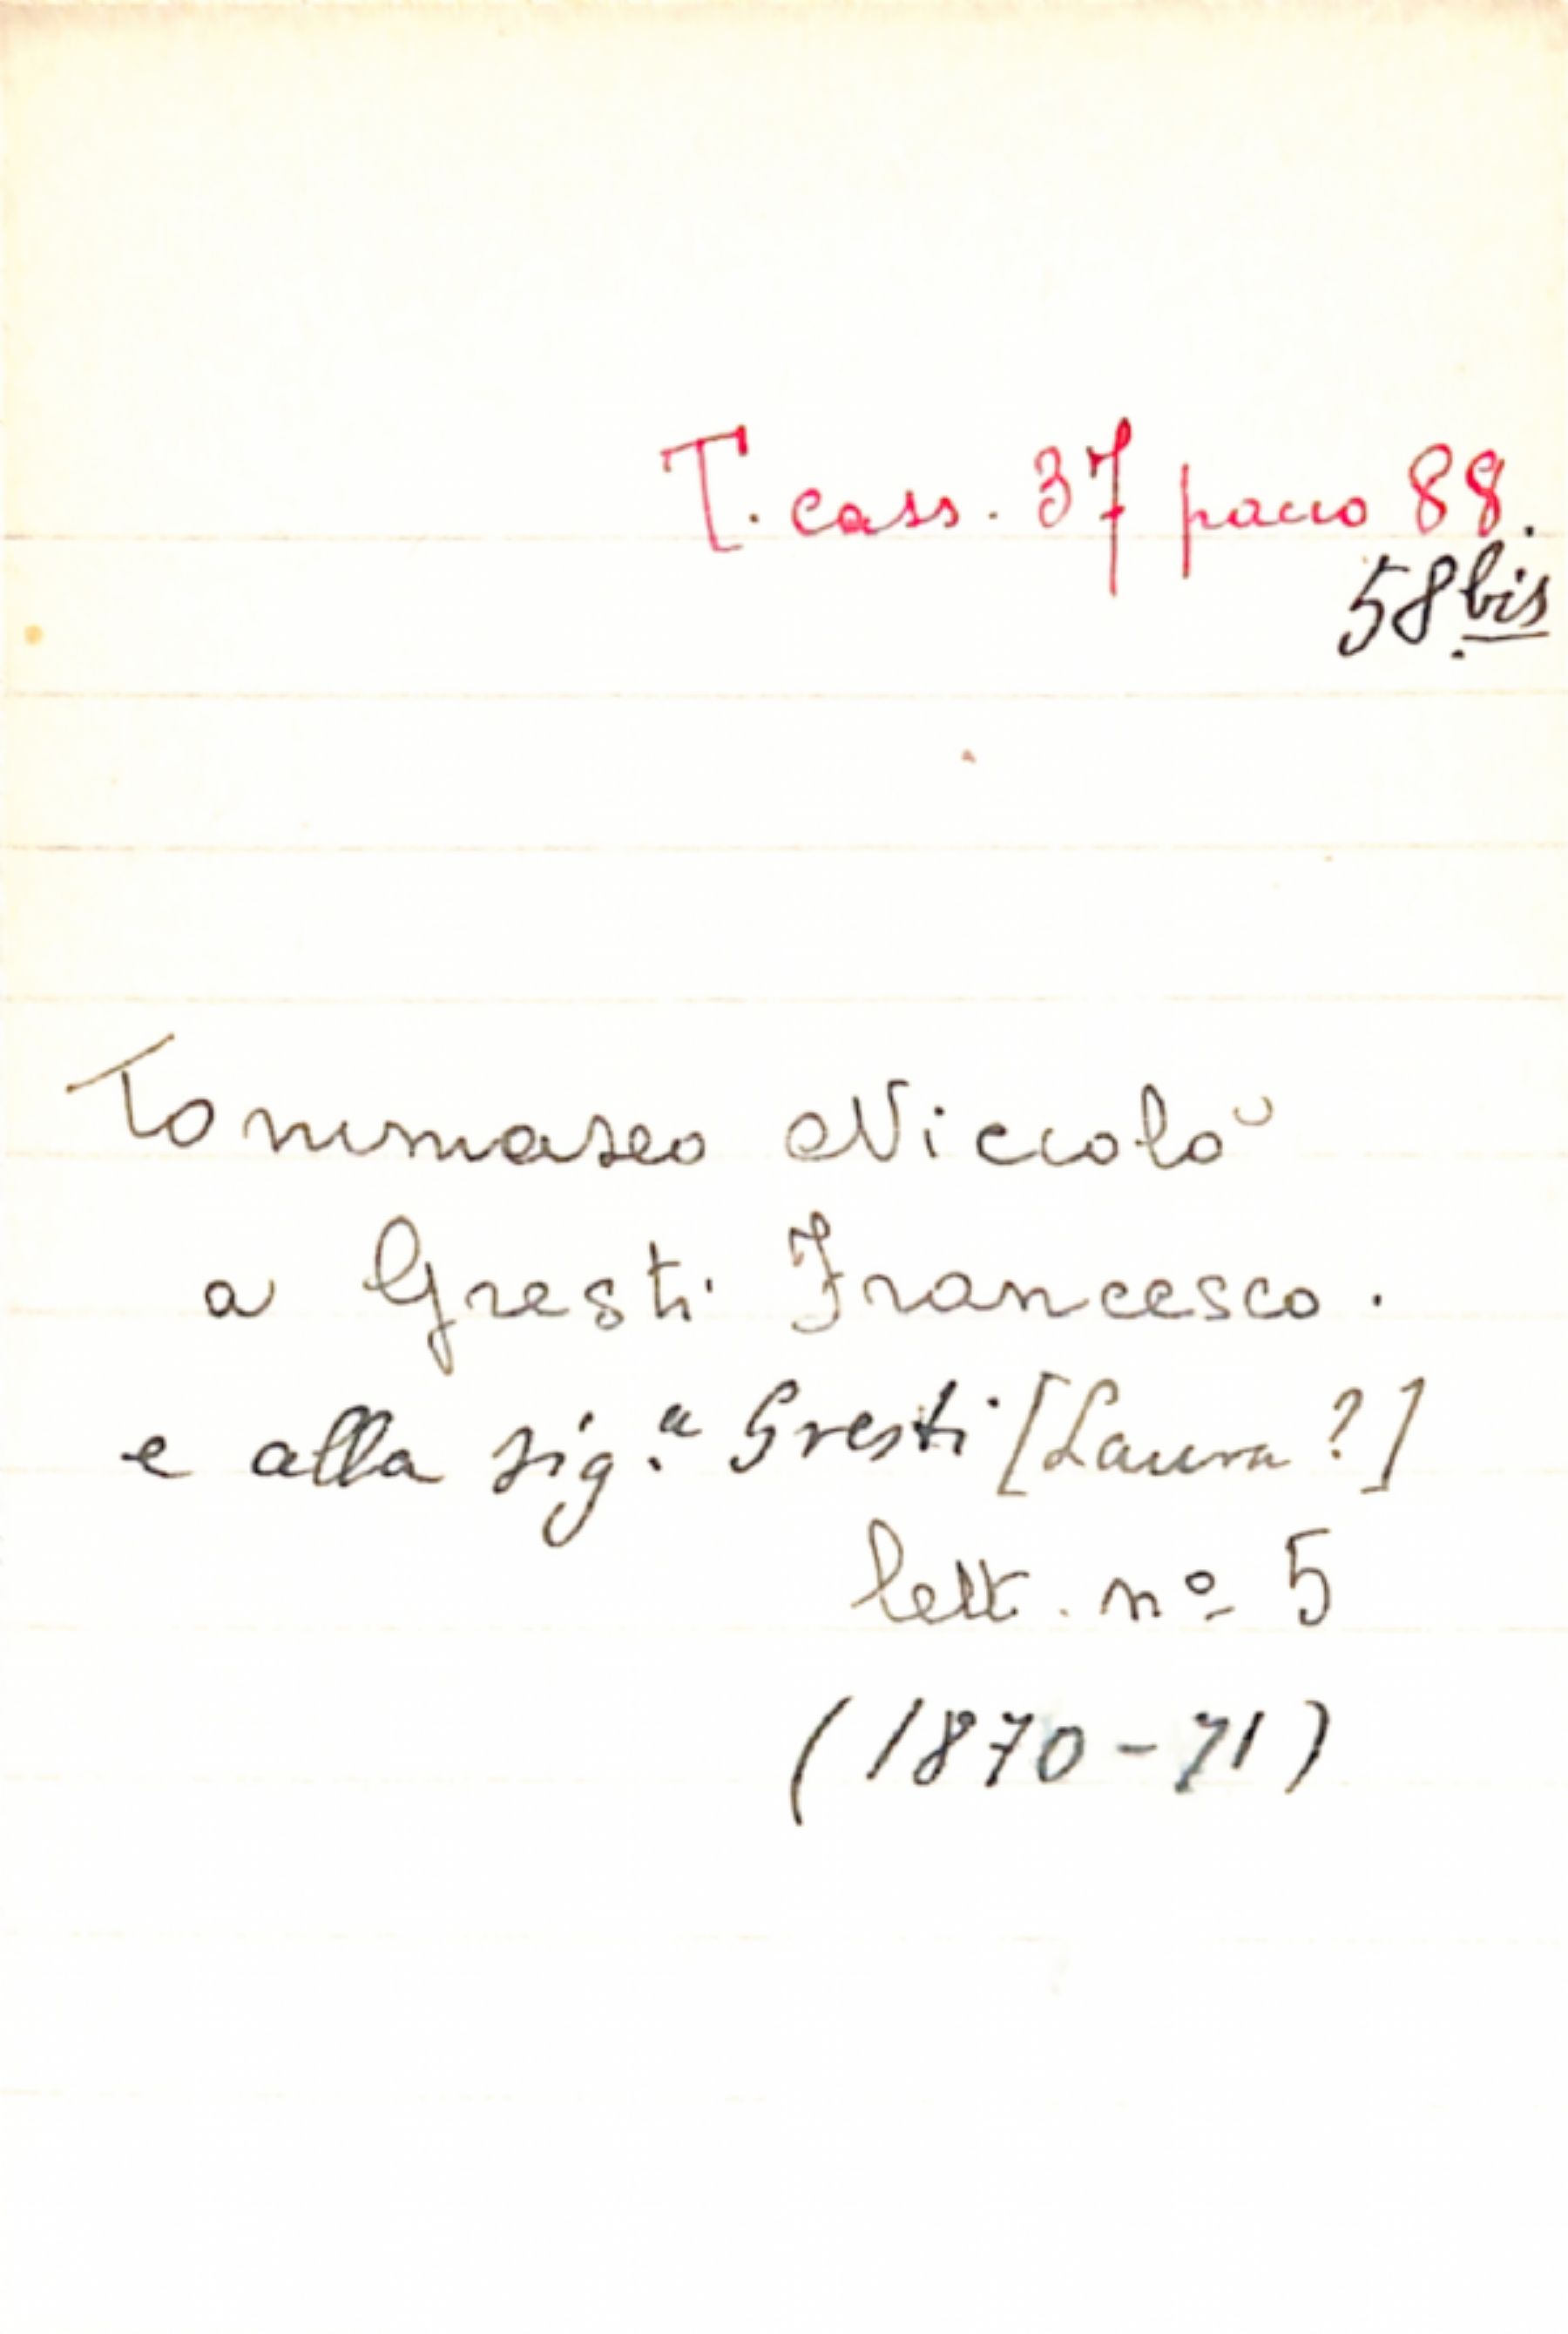 T. cass. 37 pacco 88.
58 bis
Tommaseo Niccolò
a Gresti Francesco.
e alla sig.a Gresti [Laura?]
lett. nº 5
(1870-71)